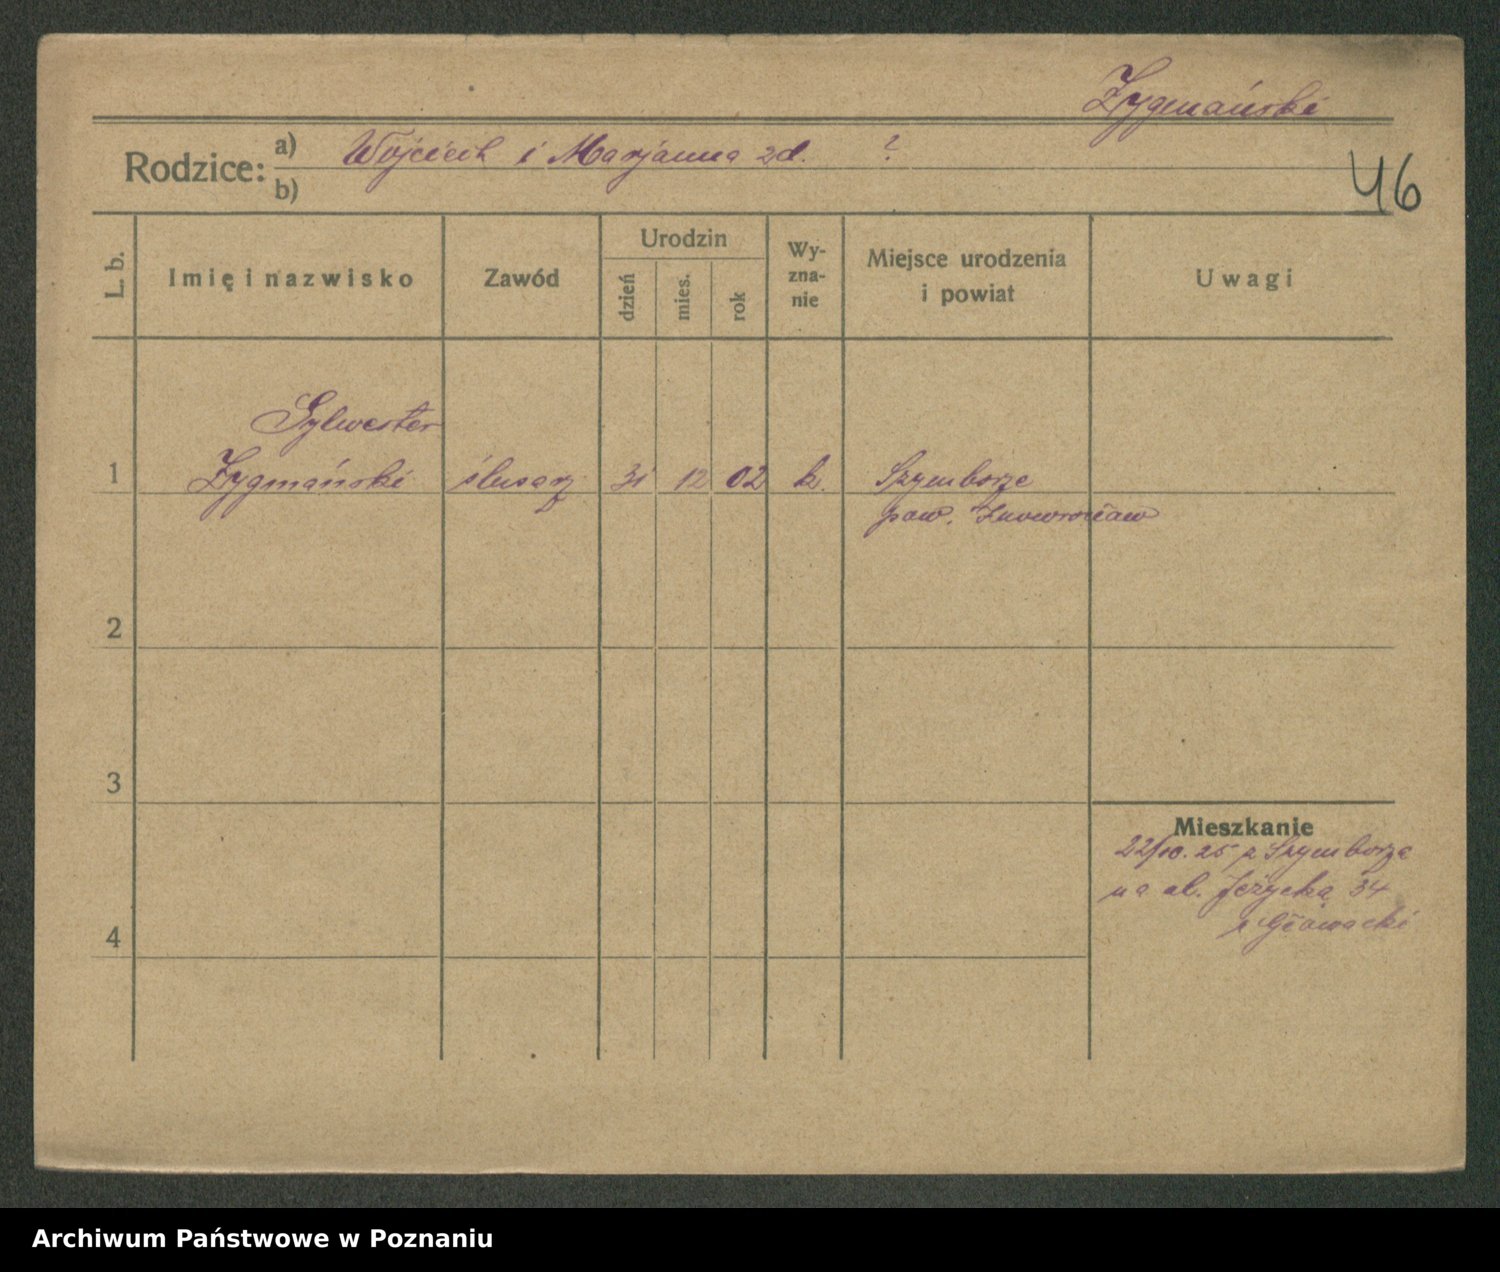 Zygmański
Rodzice: a) Wojciech i Marjanna zd. ?
b)
46
L. b. Imię i nazwisko Zawód Urodzin dzień mies. rok Wy-zna-nie Miejsce urodzenia i powiat Uwagi
Sylwester
1 Zygmański ślusarz 31 12 02 k. Szymborze
pow. Inowrocław
2
3
Mieszkanie
22/10. 25 z Szymborza
na ul. Jeżycka 34
4
Głowacki
Archiwum Państwowe w Poznaniu